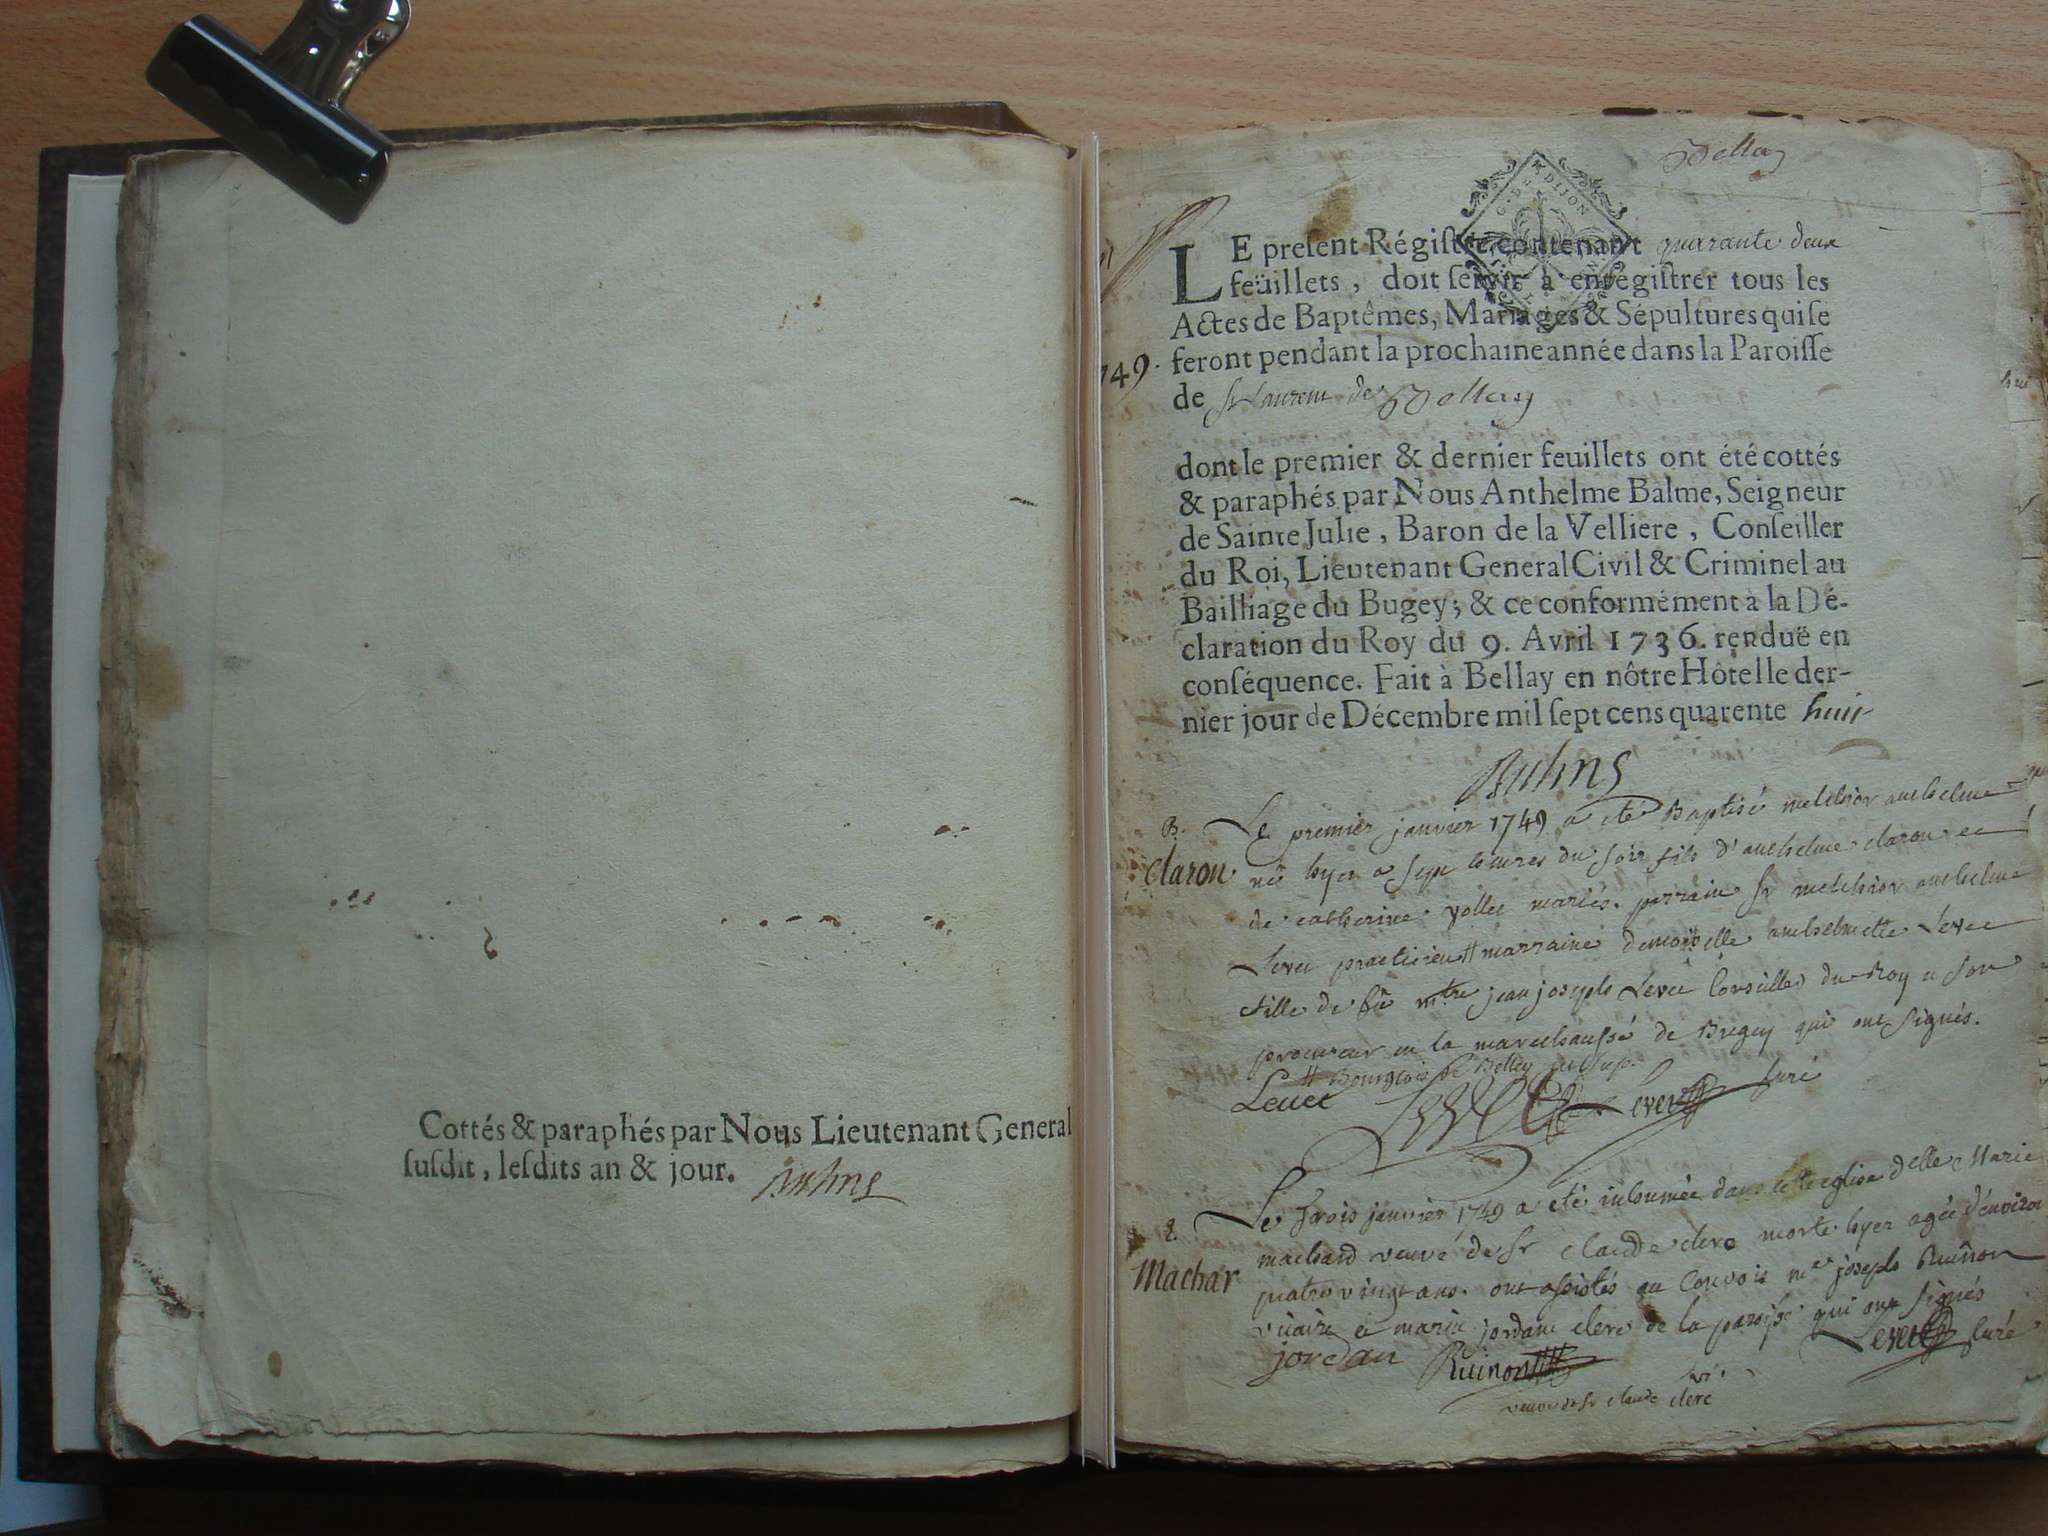 Cottés & paraphés par Nous Lieutenant General
susdit, lesdits an & jour.
Bellay
G. DE DIJON
LE present Régistre contenant quarante deux
feüillets, doit servir à enregistrer tous les
Actes de Baptêmes, Mariages & Sépultures qui se
feront pendant la prochaine année dans la Paroisse
749.
de St Laurent de Belley
dont le premier & dernier feuillets ont été cottés
& paraphés par Nous Anthelme Balme, Seigneur
de Sainte Julie, Baron de la Velliere, Conseiller
du Roi, Lieutenant General Civil & Criminel au
Bailliage du Bugey; & ce conformément à la Dé-
claration du Roy du 9. Avril 1736. renduë en
conséquence. Fait à Bellay en nôtre Hôtel le der-
nier jour de Décembre mil sept cens quarente huit
B.
Claron
Le premier janvier 1749 a eté Baptisé melchior anthelme
né hyer a sept heures du soir fils d'anthelme claron et
de catherine vollet mariés. parrain Sr melchior anthelme
Levet practicien # marraine demoiselle anthelmette Levet
fille de feu mtre jean joseph Levet Conseiller du Roy et son
procureur en la marechaussé de Bugey qui ont signés.
# Bourgeois de Belley
Levet Levet curé
S.
Machar
Le trois janvier 1749 a eté inhumée dans cette eglise delle Marie
machard veuve de Sr claude clerc morte hyer agée d'environ
quatre vingt ans. ont assistés au Convois mre joseph Ruinon
vicaire et marin jordan clerc de la paroisse qui ont signés
jordan Ruinon vi. Levet Curé
veuve de Sr claude clerc